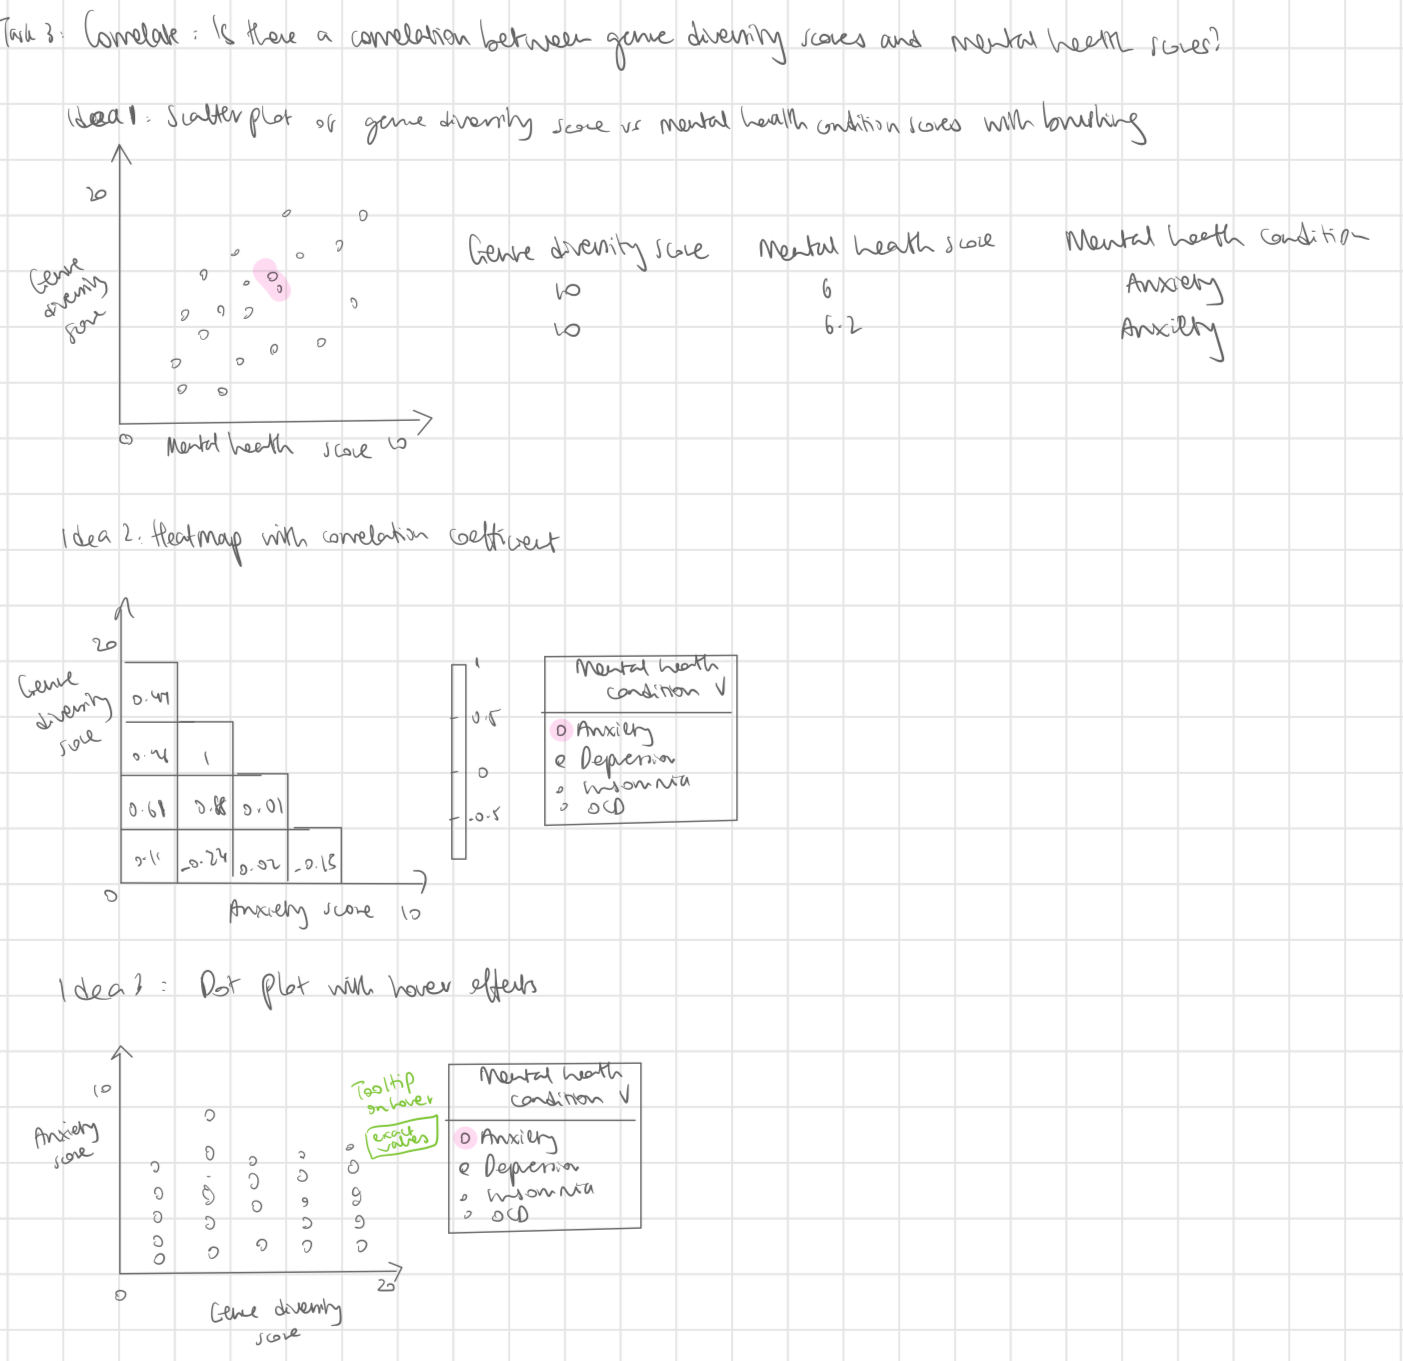 Task 3: Correlate: Is there a correlation between genre diversity scores and mental health scores?
Idea 1: Scatter plot of genre diversity score vs mental health condition scores with brushing
20
Genre
diversity
score
0
Mental health score 10
Genre diversity score Mental health score Mental health condition
10 6 Anxiety
10 6.2 Anxiety
Idea 2: Heatmap with correlation coefficient
20
Genre
diversity
score
0.47
1
0.61 0.01
-0.24 0.02 -0.15
0
Anxiety score 10
1
0.5
0
-0.5
Mental health
condition V
Anxiety
Depression
insomnia
OCD
Idea 3: Dot plot with hover effects
10
Anxiety
score
Tooltip
on hover
exact
values
0
20
Genre diversity
score
Mental health
condition V
Anxiety
Depression
insomnia
OCD